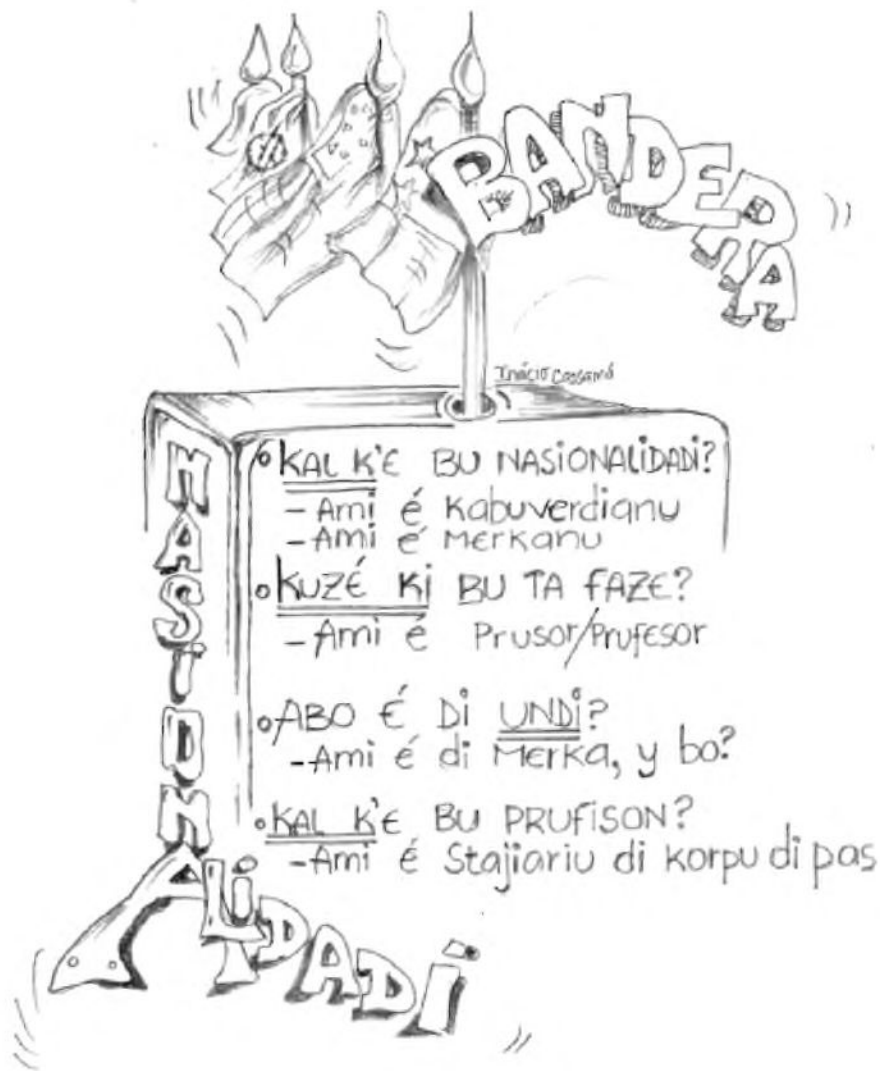 BANDERA
Inácio Cassamá
NASIONALIDADI
KAL K'E BU NASIONALIDADI?
- Ami é Kabuverdianu
- Ami é Merkanu
KUZÉ Ki BU TA FAZE?
- Ami é Prusor/Prufesor
ABO É Di UNDi?
- Ami é di Merka, y bo?
KAL K'E BU PRUFiSON?
- Ami é Stajiariu di korpu di pas